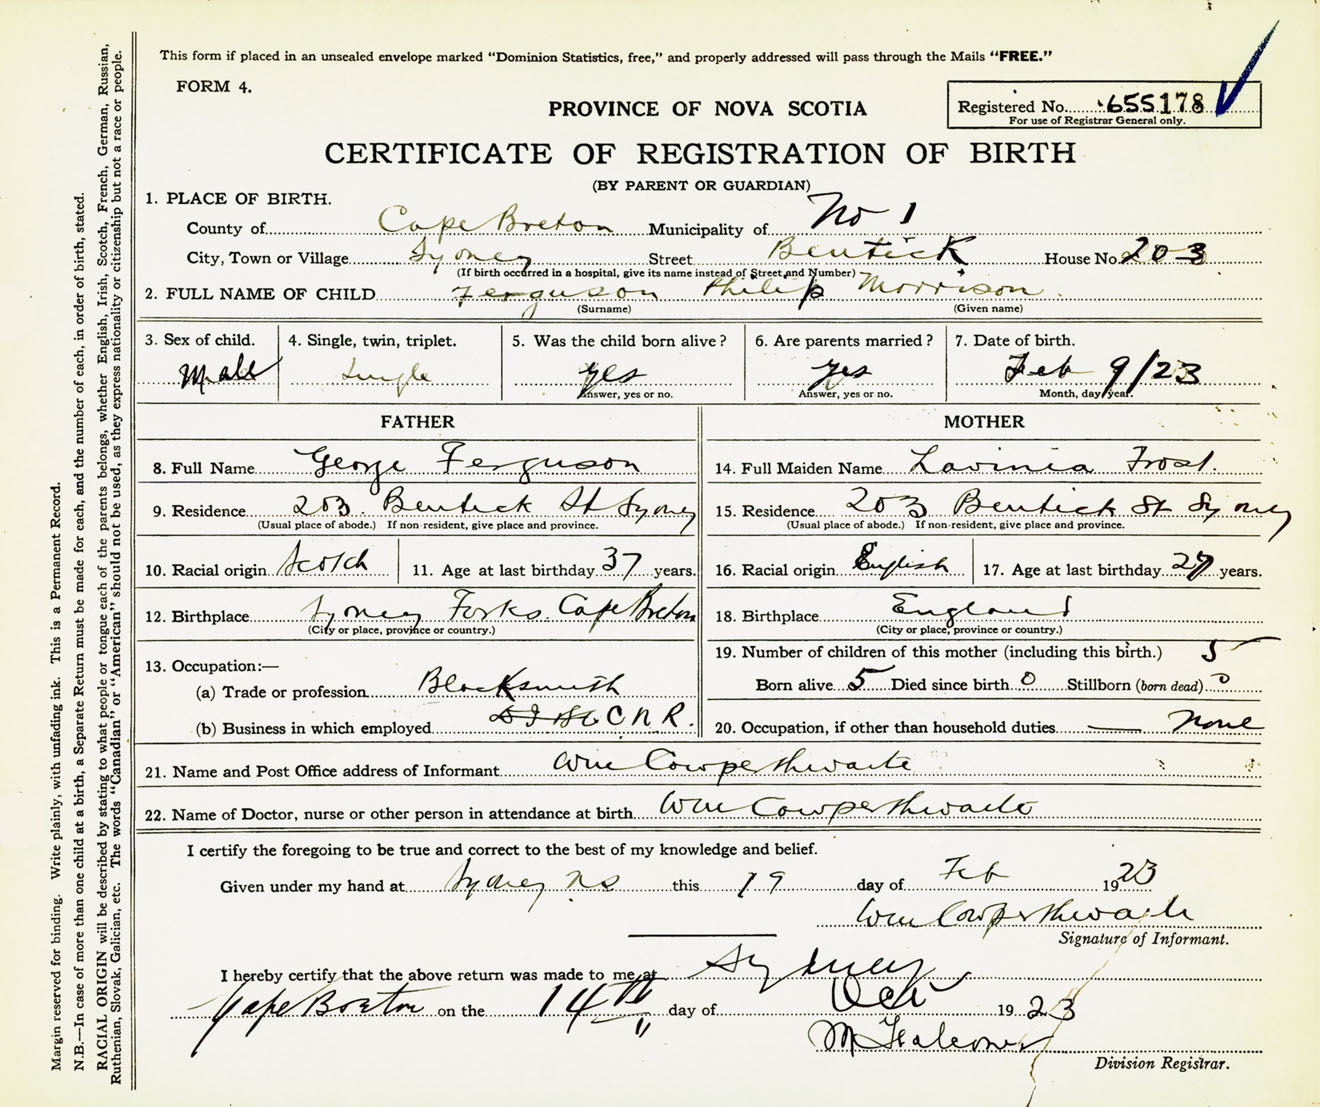 This form if placed in an unsealed envelope marked "Dominion Statistics, free," and properly addressed will pass through the Mails "FREE."
FORM 4.
PROVINCE OF NOVA SCOTIA
Registered No. 655178
For use of Registrar General only.
CERTIFICATE OF REGISTRATION OF BIRTH
(BY PARENT OR GUARDIAN)
1. PLACE OF BIRTH.
County of Cape Breton Municipality of No 1
City, Town or Village Sydney Street Bentick House No. 203
(If birth occurred in a hospital, give its name instead of Street and Number)
2. FULL NAME OF CHILD Ferguson Philip Morrison
(Surname) (Given name)
3. Sex of child. 4. Single, twin, triplet. 5. Was the child born alive? 6. Are parents married? 7. Date of birth.
Male Single yes yes Feb 9/23
Answer, yes or no. Answer, yes or no. Month, day, year.
FATHER MOTHER
8. Full Name George Ferguson 14. Full Maiden Name Lavinia Frost.
9. Residence 203. Bentick St Sydney 15. Residence 203 Bentick St Sydney
(Usual place of abode.) If non-resident, give place and province. (Usual place of abode.) If non-resident, give place and province.
10. Racial origin Scotch 11. Age at last birthday 37 years. 16. Racial origin English 17. Age at last birthday 27 years.
12. Birthplace Sydney Forks. Cape Breton 18. Birthplace England
(City or place, province or country.) (City or place, province or country.)
13. Occupation:— 19. Number of children of this mother (including this birth.) 5
(a) Trade or profession Blacksmith Born alive 5 Died since birth 0 Stillborn (born dead) 0
(b) Business in which employed C N R. 20. Occupation, if other than household duties — none
21. Name and Post Office address of Informant Wm Cowperthwaite
22. Name of Doctor, nurse or other person in attendance at birth Wm Cowperthwaite
I certify the foregoing to be true and correct to the best of my knowledge and belief.
Given under my hand at Sydney NS this 19 day of Feb 1923
Wm Cowperthwaite
Signature of Informant.
I hereby certify that the above return was made to me at Sydney
Cape Breton on the 14th day of Oct 1923
Division Registrar.
Margin reserved for binding. Write plainly, with unfading ink. This is a Permanent Record.
N.B.—In case of more than one child at a birth, a Separate Return must be made for each, and the number of each, in order of birth, stated.
RACIAL ORIGIN will be described by stating to what people or tongue each of the parents belongs, whether English, Irish, Scotch, French, German, Russian,
Ruthenian, Slovak, Galician, etc. The words "Canadian" or "American" should not be used, as they express nationality or citizenship but not a race or people.